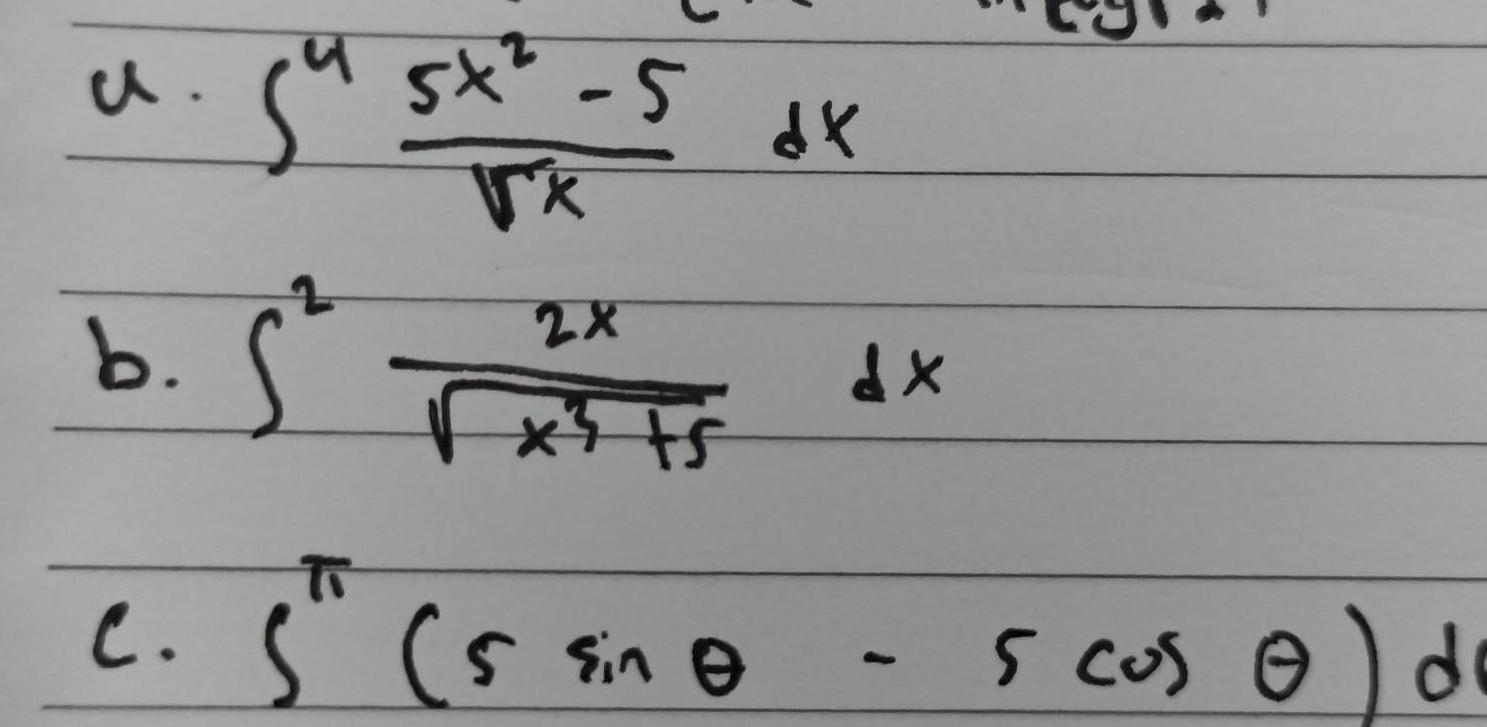 a. ∫⁴ (5x² - 5)/√x dx
b. ∫² 2x/√(x³ + 5) dx
c. ∫^π (5 sin θ - 5 cos θ) d